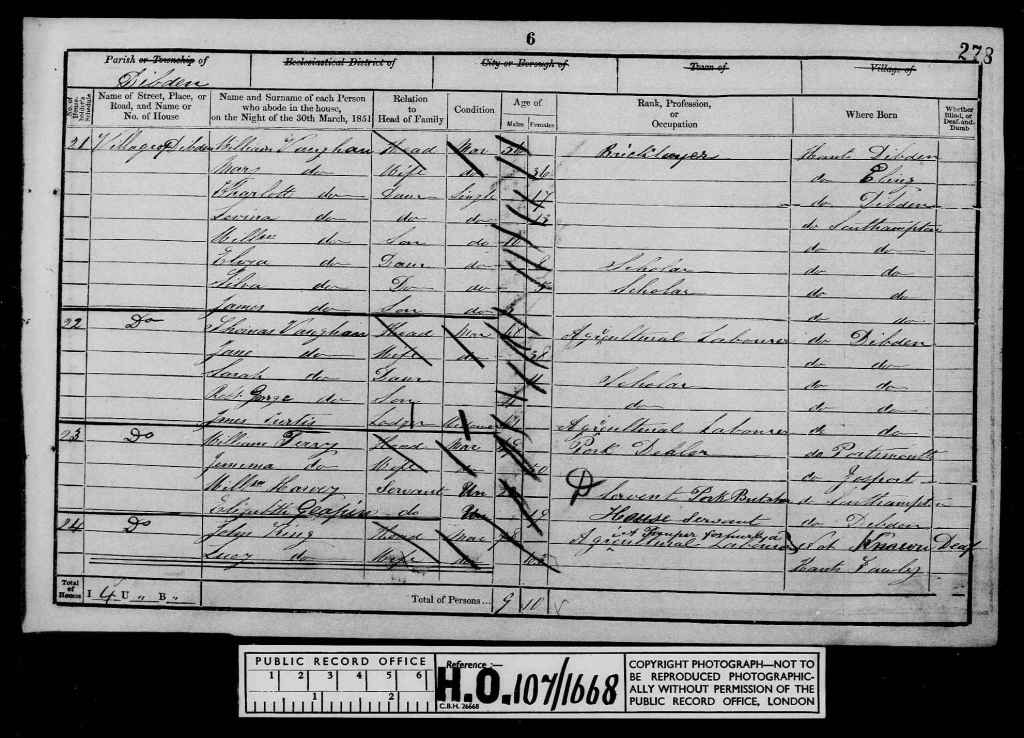 6
278
Parish or Township of Ecclesiastical District of City or Borough of Town of Village of
Dibden
No. of House-holder's Schedule Name of Street, Place, or Road, and Name or No. of House Name and Surname of each Person who abode in the house, on the Night of the 30th March, 1851 Relation to Head of Family Condition Age of Males Females Rank, Profession, or Occupation Where Born Whether Blind, or Deaf-and-Dumb
21 Village of Dibden William Vaughan Head Mar Bricklayer Hants Dibden
Mary do Wife do 36 do Eling
Charlott do Daur Single 17 do Dibden
Lovina do do do 13 do Southampton
Willm do Son do 10 do do
Eliza do Daur do Scholar do do
Silva do Do do Scholar do do
James do Son do do do
22 Do Thomas Vaughan Head Mar Agricultural Labourer do Dibden
Jane do Wife do 38 do do
Sarah do Daur 11 Scholar do do
Robt George do Son do do do
James Curtis Lodger Agricultural Labourer do do
23 Do William Head Mar Pork Dealer do Portsmouth
Jemima do Wife 50 do Gosport
Willm Harvey Servant Un Servent Pork Butcher do Southampton
Elizabeth do Un 19 House Servant do Dibden
24 Do John King Head Mar A Pauper formerly a Agricultural Labourer Not Known Deaf
Lucy do Wife Hants Fawley
Total of Houses I 4 U " B " Total of Persons... 9 10
PUBLIC RECORD OFFICE
1 2 3 4 5 6
1 2
Reference :-
H.O. 107/1668
C.B.H. 26668
COPYRIGHT PHOTOGRAPH—NOT TO
BE REPRODUCED PHOTOGRAPHIC-
ALLY WITHOUT PERMISSION OF THE
PUBLIC RECORD OFFICE, LONDON